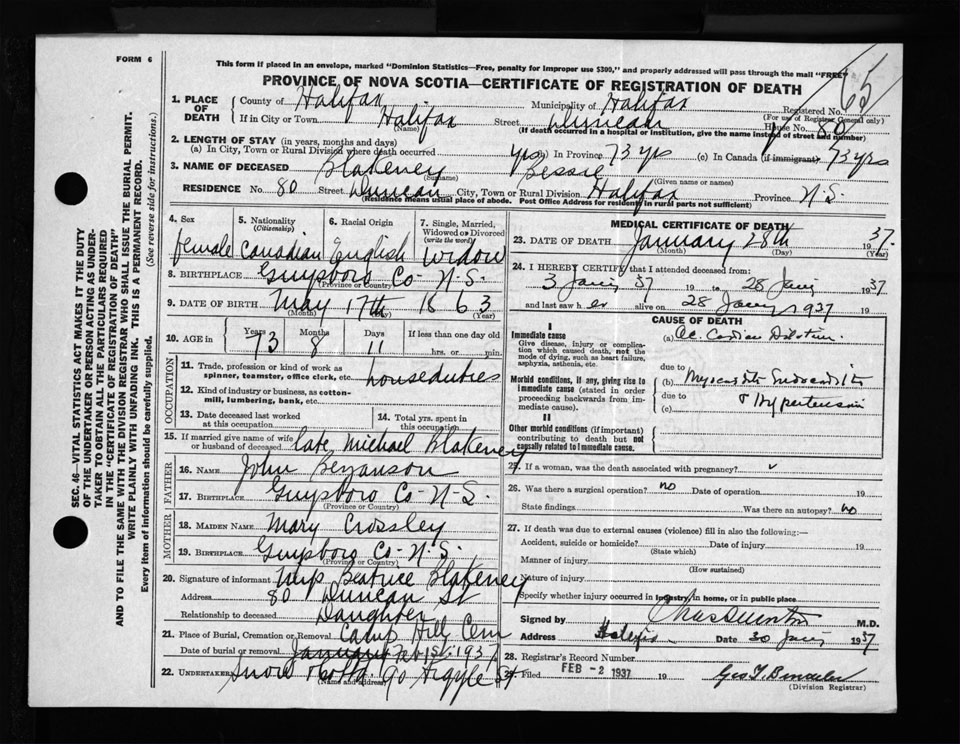 FORM 6
This form if placed in an envelope, marked "Dominion Statistics—Free, penalty for improper use $300," and properly addressed will pass through the mail "FREE"
PROVINCE OF NOVA SCOTIA—CERTIFICATE OF REGISTRATION OF DEATH
65
1. PLACE OF DEATH { County of Halifax Municipality of Halifax Registered No.
(For use of Registrar General only)
If in City or Town Halifax Street Duncan House No. 80
(Name) (If death occurred in a hospital or institution, give the name instead of street and number)
2. LENGTH OF STAY (in years, months and days)
(a) In City, Town or Rural Division where death occurred yrs (b) In Province 73 yrs (c) In Canada (if immigrant) 73 yrs
3. NAME OF DECEASED Blakeney Bessie
(Surname) (Given name or names)
RESIDENCE No. 80 Street Duncan City, Town or Rural Division Halifax Province N.S.
(Residence means usual place of abode. Post Office Address for residents in rural parts not sufficient)
4. Sex 5. Nationality (Citizenship) 6. Racial Origin 7. Single, Married, Widowed or Divorced (write the word)
female Canadian English Widow
8. BIRTHPLACE Guysboro Co- N-S.
(Province or Country)
9. DATE OF BIRTH May 17th 1863
(Month) (Day) (Year)
10. AGE in { Years Months Days If less than one day old
73 8 11 hrs. or min.
OCCUPATION
11. Trade, profession or kind of work as spinner, teamster, office clerk, etc. houseduties
12. Kind of industry or business, as cotton-mill, lumbering, bank, etc.
13. Date deceased last worked at this occupation 14. Total yrs. spent in this occupation
15. If married give name of wife or husband of deceased late Michael Blakeney
FATHER
16. NAME John Bezanson
17. BIRTHPLACE Guysboro Co- N-S.
(Province or Country)
MOTHER
18. MAIDEN NAME Mary Crossley
19. BIRTHPLACE Guysboro Co- N-S.
(Province or Country)
20. Signature of informant Beatrice Blakeney
Address 80 Duncan St
Relationship to deceased Daughter
21. Place of Burial, Cremation or Removal Camp Hill Cem
Date of burial or removal January Feb 1st 1937
22. UNDERTAKER Snow 90 Argyle St
(Name and address)
MEDICAL CERTIFICATE OF DEATH
23. DATE OF DEATH January 28th 1937.
(Month) (Day) (Year)
24. I HEREBY CERTIFY that I attended deceased from:
3 Jany 37 19 to 28 Jany 1937
and last saw h er alive on 28 Jany 1937
CAUSE OF DEATH
I
Immediate cause
Give disease, injury or complication which caused death, not the mode of dying, such as heart failure, asphyxia, asthenia, etc.
(a) Ac. Cardiac Dilation
due to
Morbid conditions, if any, giving rise to immediate cause (stated in order proceeding backwards from immediate cause).
(b) Myocarditis Endocarditis
due to
(c) + Hypertension
II
Other morbid conditions (if important) contributing to death but not causally related to immediate cause.
25. If a woman, was the death associated with pregnancy?
26. Was there a surgical operation? no Date of operation 19
State findings Was there an autopsy? no
27. If death was due to external causes (violence) fill in also the following:—
Accident, suicide or homicide? Date of injury 19
(State which)
Manner of injury
(How sustained)
Nature of injury
Specify whether injury occurred in industry, in home, or in public place
Signed by M.D.
Address Halifax Date 30 Jany 1937
28. Registrar's Record Number
Filed FEB - 2 1937 19
(Division Registrar)
SEC. 46—VITAL STATISTICS ACT MAKES IT THE DUTY
OF THE UNDERTAKER OR PERSON ACTING AS UNDER-
TAKER TO OBTAIN ALL THE PARTICULARS REQUIRED
IN THE "CERTIFICATE OF REGISTRATION OF DEATH"
AND TO FILE THE SAME WITH THE DIVISION REGISTRAR WHO SHALL ISSUE THE BURIAL PERMIT.
WRITE PLAINLY WITH UNFADING INK. THIS IS A PERMANENT RECORD.
Every item of information should be carefully supplied. (See reverse side for instructions.)